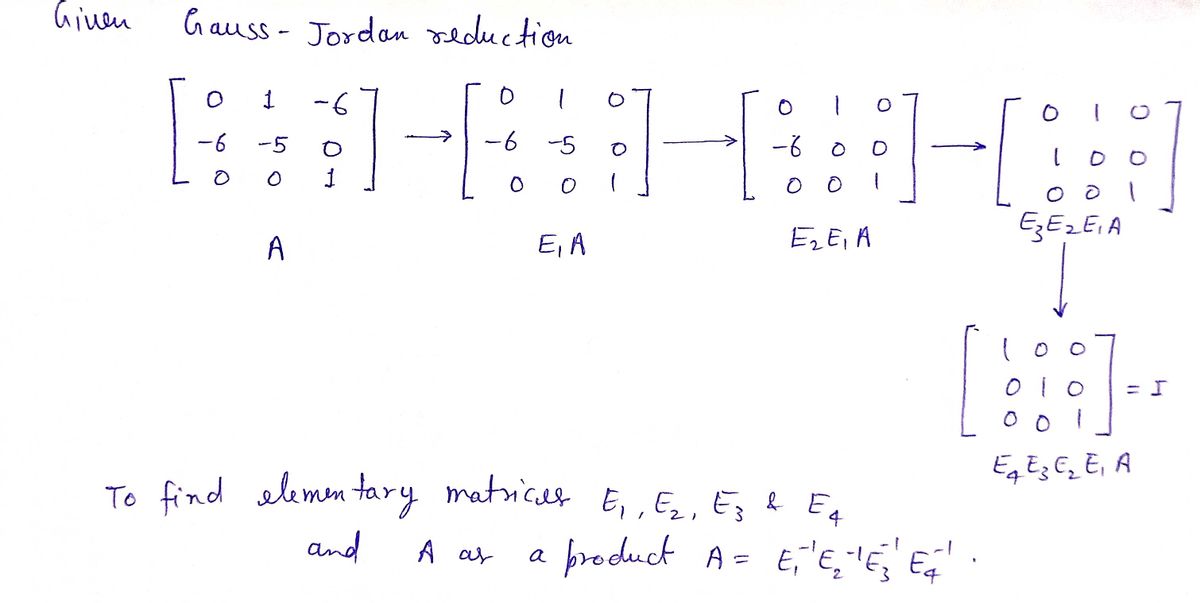 Given Gauss - Jordan reduction
[ 0 1 -6 ] → [ 0 1 0 ] → [ 0 1 0 ] → [ 0 1 0 ]
[ -6 -5 0 ] [ -6 -5 0 ] [ -6 0 0 ] [ 1 0 0 ]
[ 0 0 1 ] [ 0 0 1 ] [ 0 0 1 ] [ 0 0 1 ]
A E₁A E₂E₁A E₃E₂E₁A
↓
[ 1 0 0 ]
[ 0 1 0 ] = I
[ 0 0 1 ]
E₄E₃E₂E₁A
To find elementary matrices E₁, E₂, E₃ & E₄
and A as a product A = E₁⁻¹E₂⁻¹E₃⁻¹E₄⁻¹.